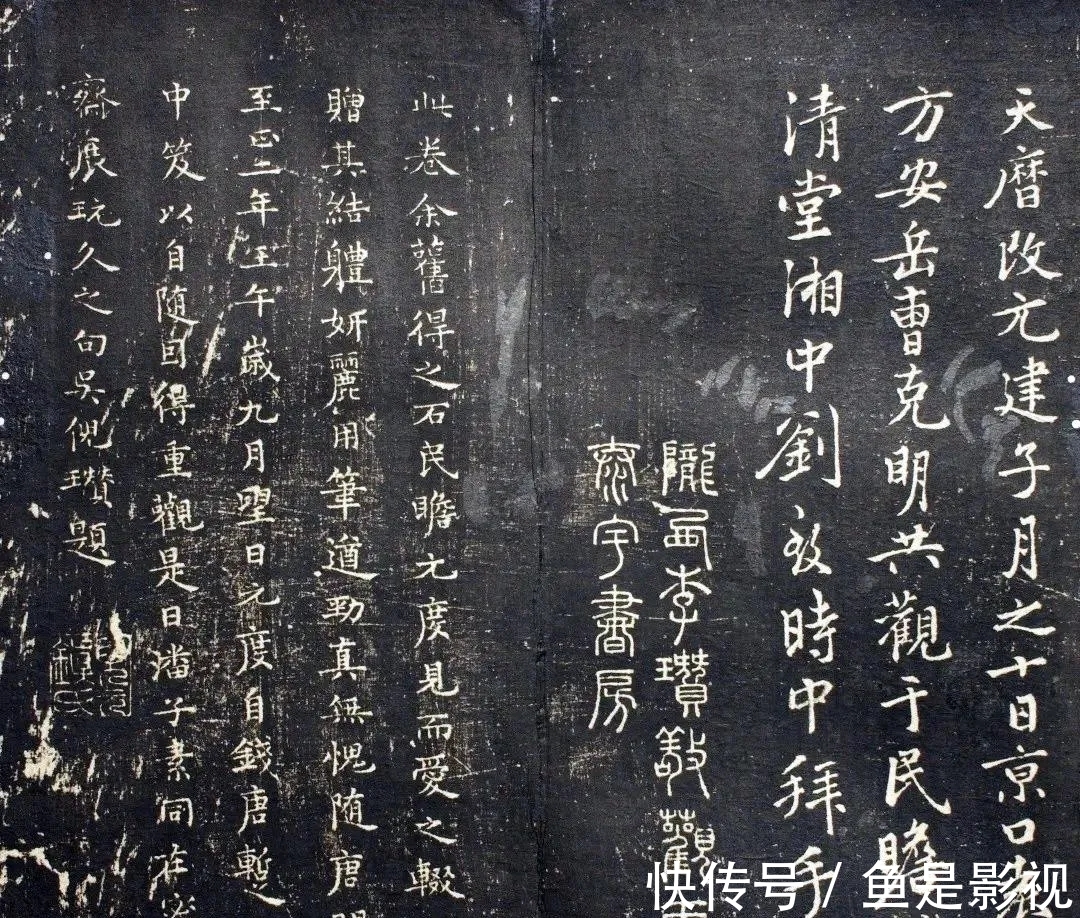 天曆改元建子月之十日京口
方安岳曹克明共觀于民瞻
清堂湘中劉致時中拜手
隴西李瓚敬觀于
泰宇書房
此卷余舊得之石民瞻元度見而愛之輟
贈其結體妍麗用筆遒勁真無愧随唐間
至正二年壬午歲九月望日元度自錢唐暫
中笈以自随因得重觀是日潘子素同在密
齋展玩久之句吳倪瓚題
快传号/鱼是影视